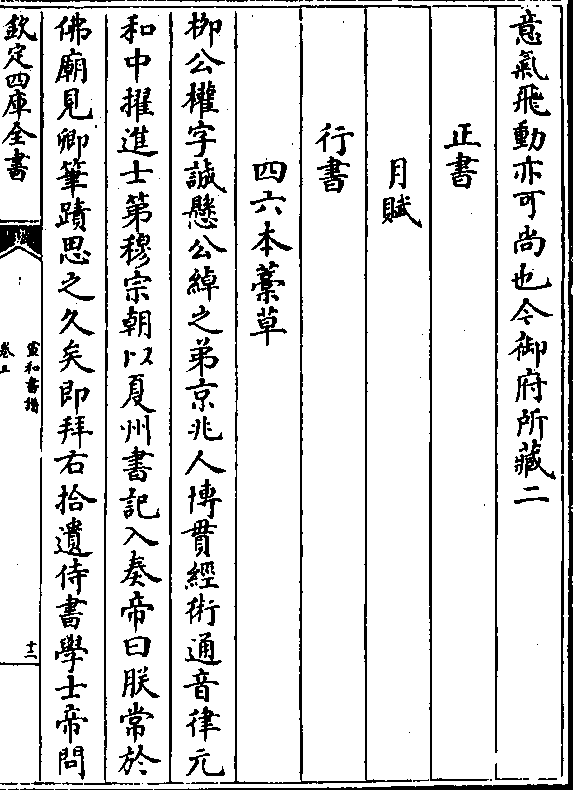 意氣飛動亦可尚也今御府所藏二
正書
月賦
行書
四六本藁草
栁公權字誠懸公綽之弟京兆人博貫經術通音律元
和中擢進士第穆宗朝以夏州書記入奏帝曰朕常於
佛廟見卿筆蹟思之久矣即拜右拾遺侍書學士帝問
欽定四庫全書
宣和書譜
卷三
十二